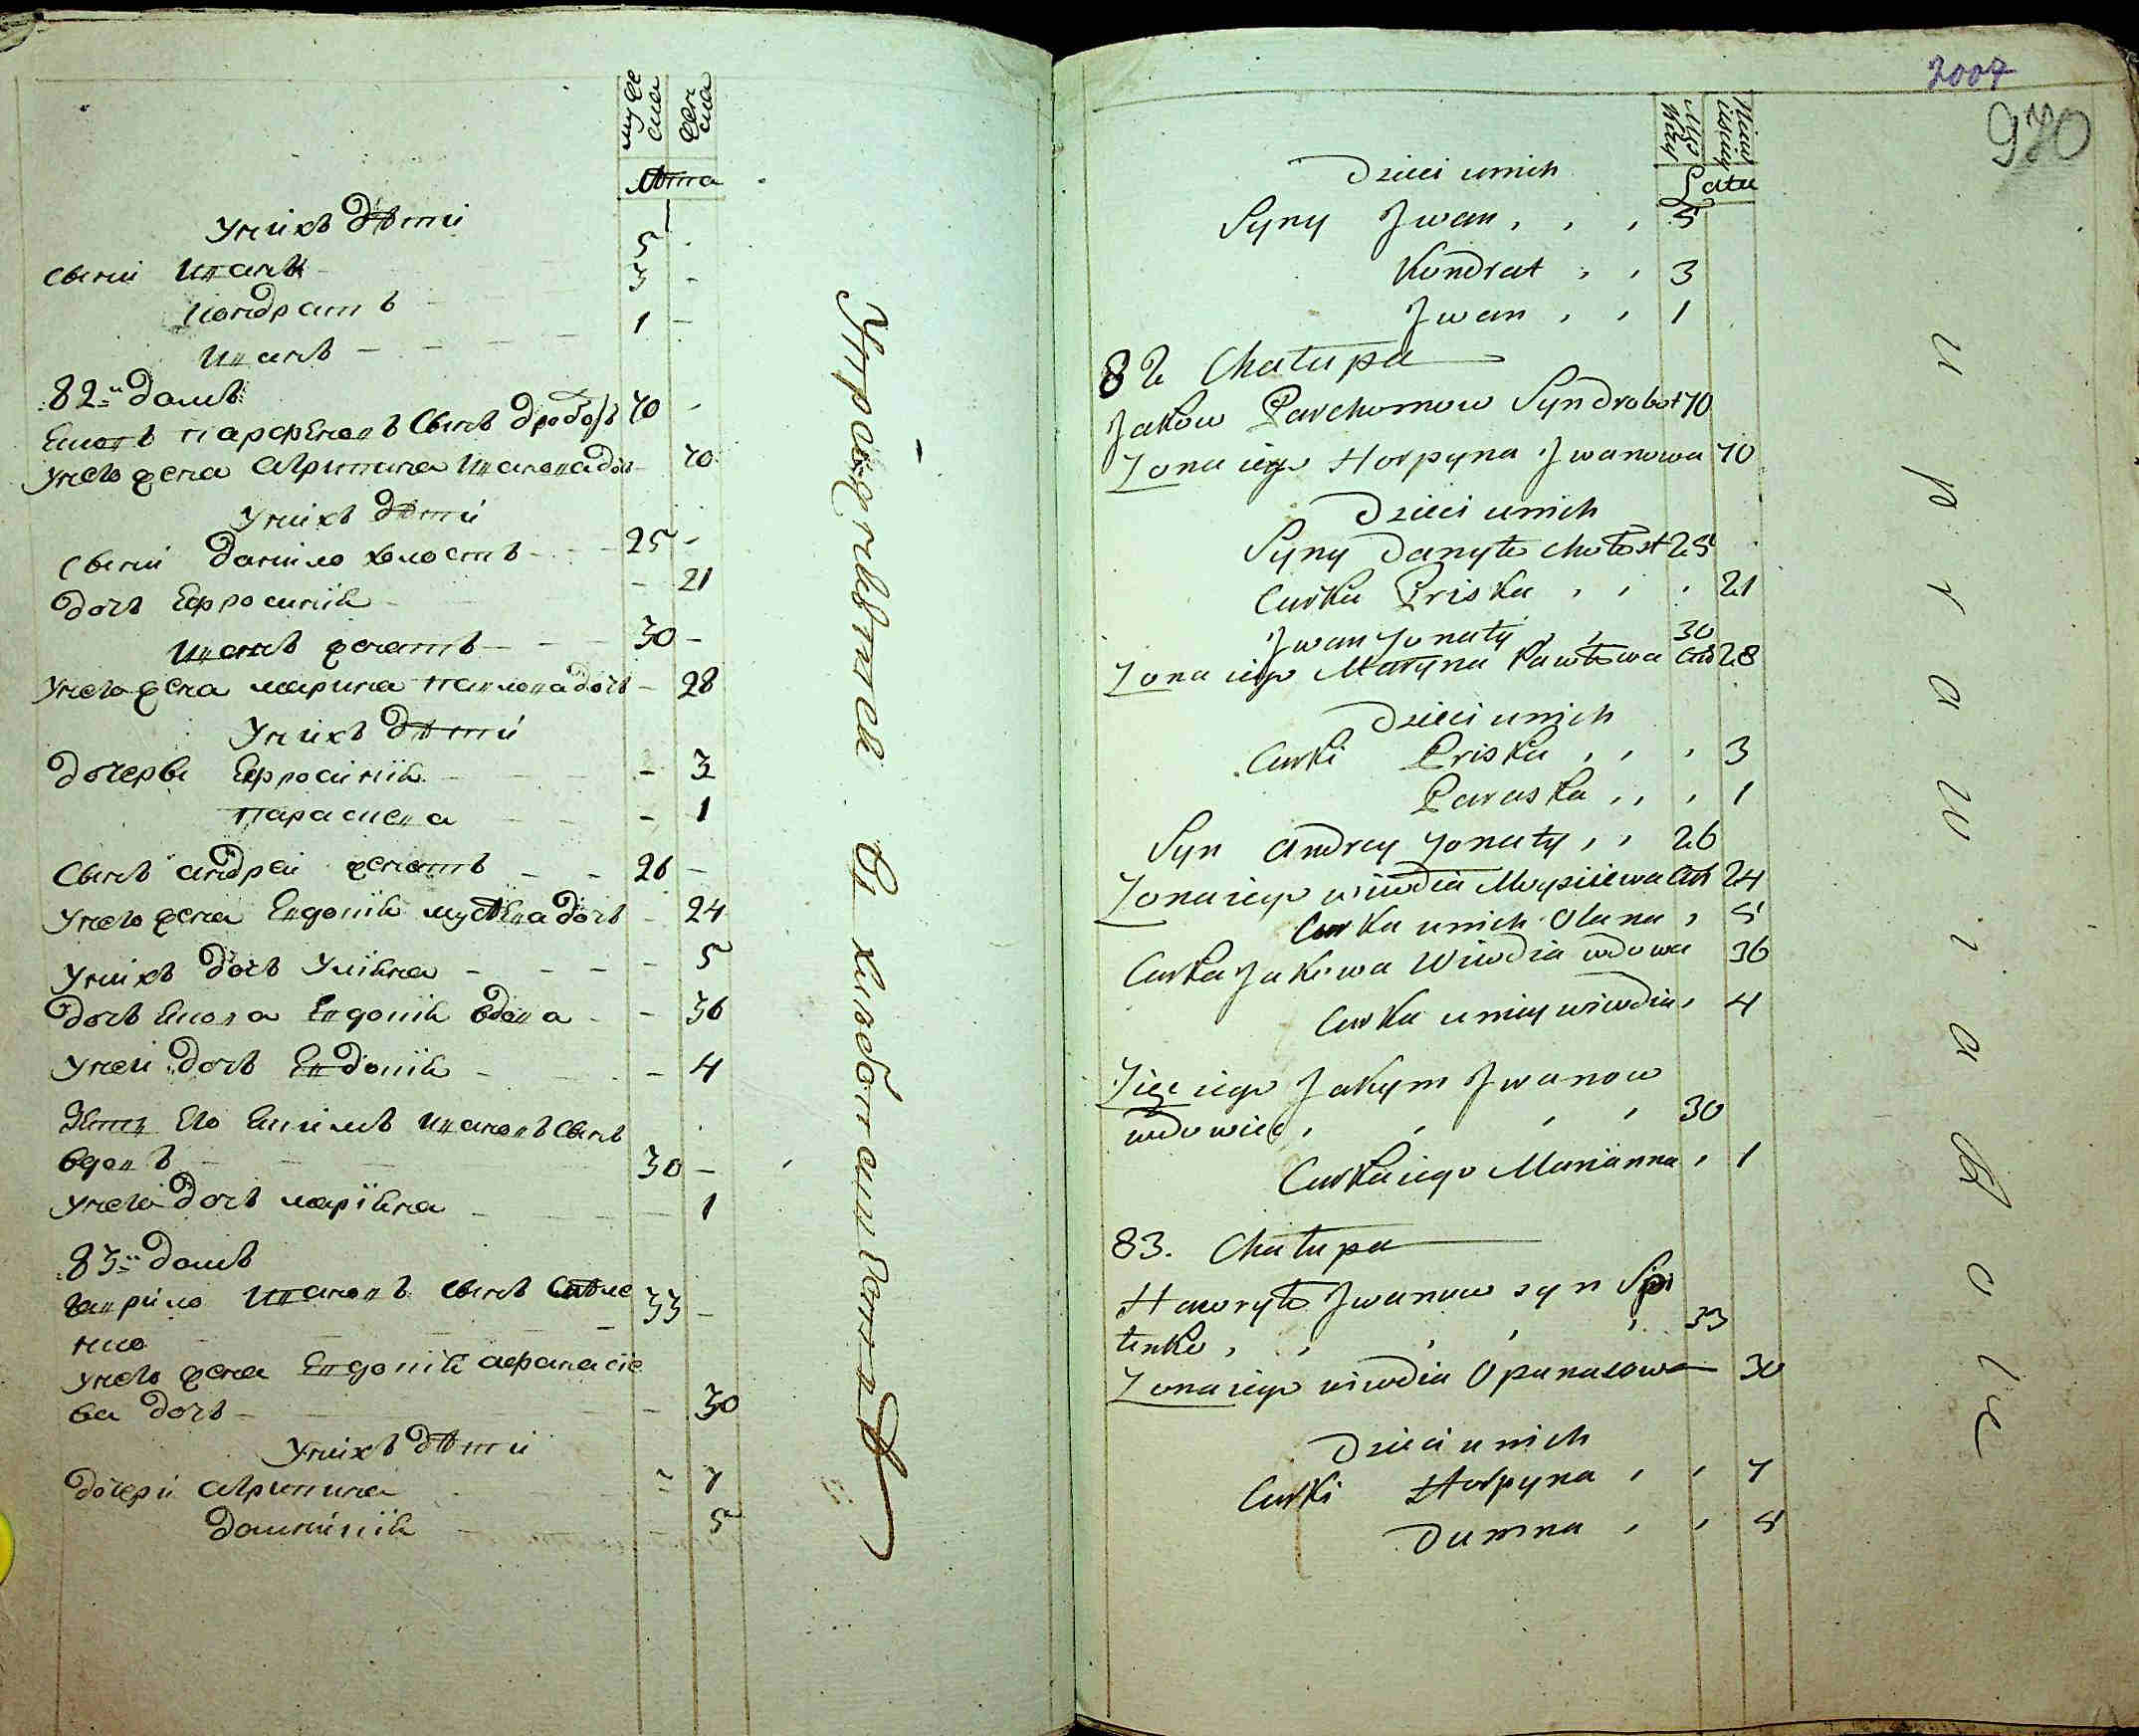 муже
ска
жен
ска
Лѣта
У нихъ дѣти
сыни Иванъ 5 -
Кондратъ 3 -
Иванъ 1 -
82й домъ
Яковъ Парфеновъ сынъ Дробот 70 -
У него жена Агрипина Иванова доч 70
У нихъ дѣти
Сыни Данило холостъ 25 -
дочь Ефросинія - 21
Иванъ женатъ 30 -
У него жена Марина Павлова дочь - 28
У нихъ дѣти
дочерѣ Ефросинія - 3
Параскева - 1
Сынъ андрей женатъ 26 -
У него жена Евдокія Мусѣева дочь - 24
У нихъ дочь Уліяна - 5
дочь Якова Евдокія вдова - 36
У ней дочь Евдокія - 4
Зять его Якимъ Ивановъ сынъ
вдовъ 30 -
У него дочь Маріяна - 1
83й домъ
Гаврило Иановъ сынъ
нко 33 -
У него жена Евдокія Афанасіе
ва дочь - 30
У нихъ дѣти
дочери Агрипина - 7
Домникія - 5
2007
970
Męs
kiey
Niew
ieściey
Lata
Dzieci u nich
Syny Jwan , , , 5
Kondrat , , 3
Jwan , , 1
82 Chałupa
Jakow Parchomow Syn Drobot 70
Żona iego Horpyna Jwanowa 70
Dzieci u nich
Syny Danyło chołost 25
Curka Priska , , , 21
Jwan żonaty , , 30
Żona iego Maryna Pawłowa Cur 28
Dzieci u nich
Curki Priska , , , 3
Paraska , , , 1
Syn Andrey żonaty , , 26
Żona iego wiwdia Moysiiewa Cur 24
Curka u nich Olana , 5
Curka Jakowa Wiwdia wdowa 36
Curka u niey wiwdia , 4
Zięć iego Jakym Jwanow
wdowiec , , , , 30
Curka iego Marianna , 1
83. Chałupa
Hawryło Jwanow syn Spi
tenko , , , , , 33
Żona iego wiwdia Opanasowa 30
Dzieci u nich
Curki Horpyna , , 7
Dumna , , 5